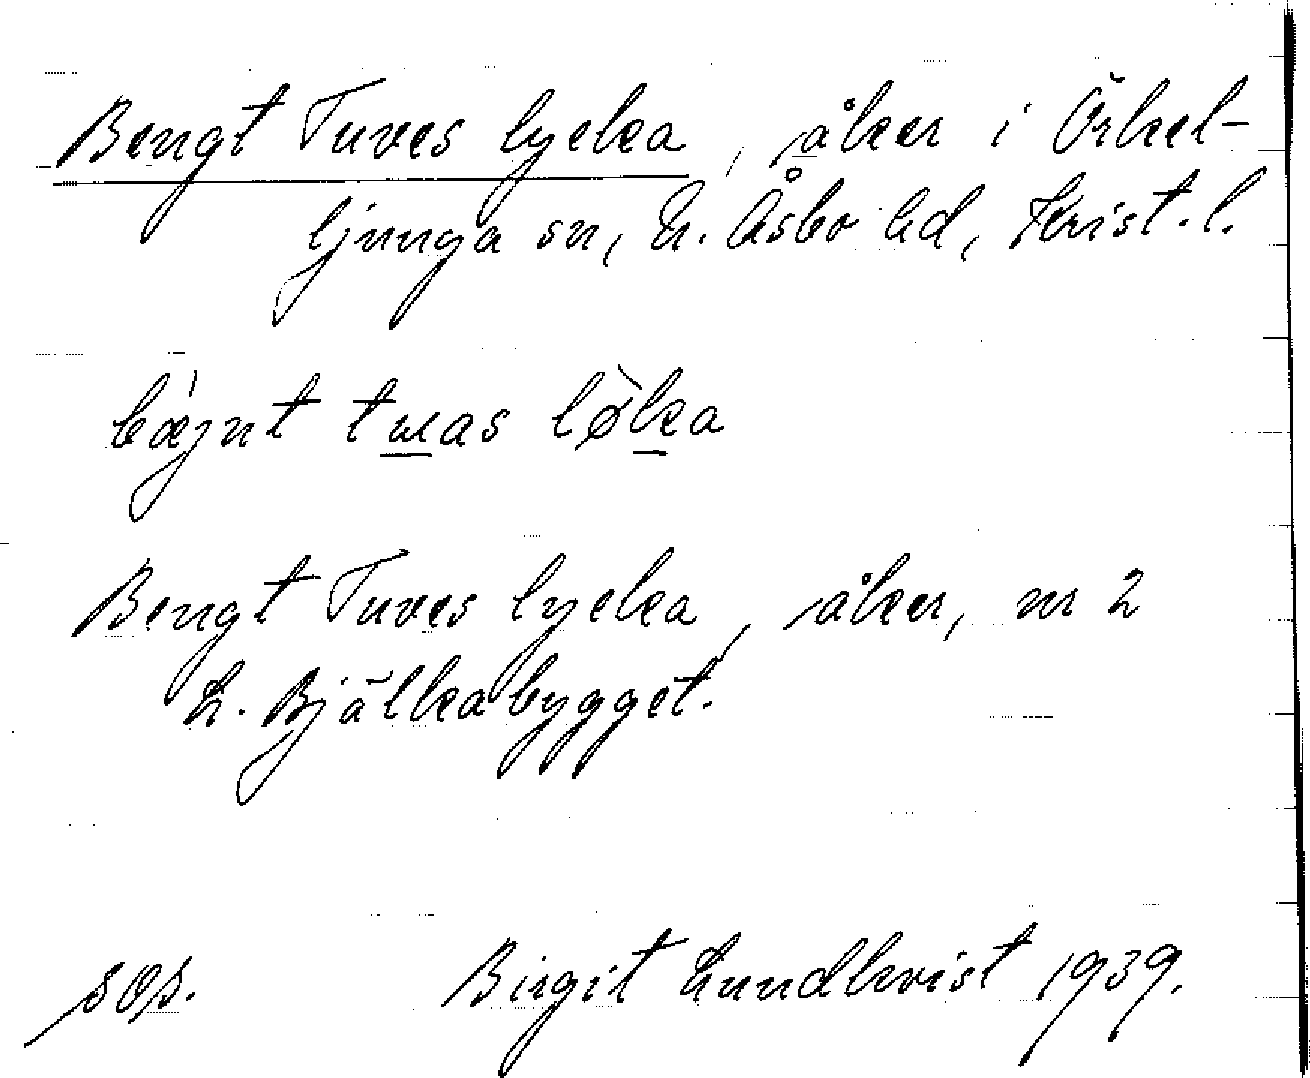 Bengt Tuves lycka, åker i Örkel-
ljunga sn, N. Åsbo hd, Krist. l.
Bengt Tuves lycka, åker, nr 2
L. Bjälkabygget.
sep. Birgit Lundkvist 1939.